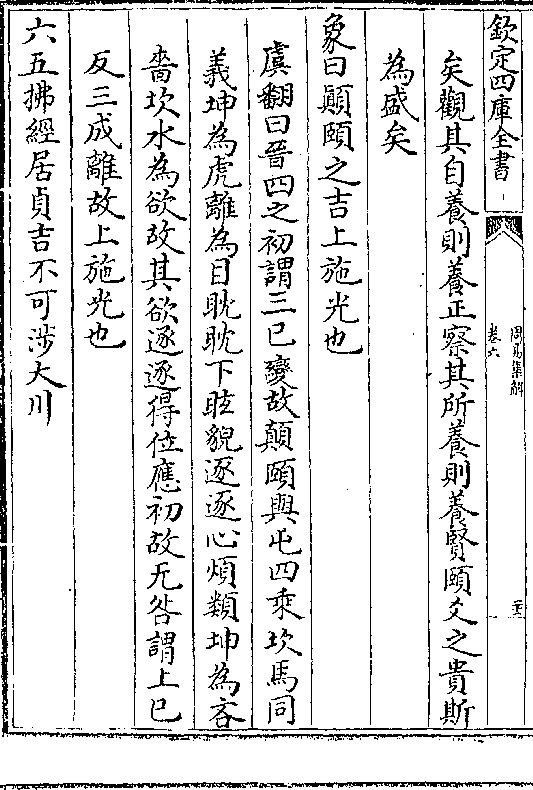 欽定四庫全書
周易集解
卷六
矣觀其自養則養正察其所養則養賢頤爻之貴斯
為盛矣
象曰顚頤之吉上施光也
虞翻曰晉四之初謂三已變故顛頤與屯四乘坎馬同
義坤為虎離為目眈眈下眡貌逐逐心煩類坤為吝
嗇坎水為欲故其欲逐逐得位應初故无咎謂上已
反三成離故上施光也
六五拂經居貞吉不可涉大川